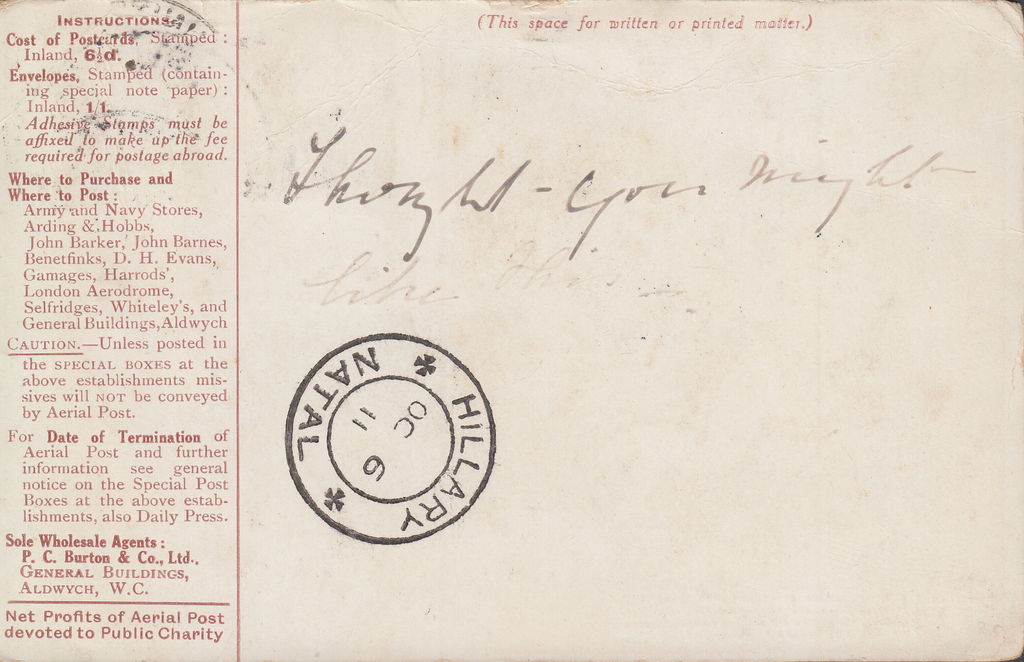 INSTRUCTIONS.
Cost of Postcards, Stamped :
Inland, 6½d.
Envelopes, Stamped (contain-
ing special note paper) :
Inland, 1/1.
Adhesive Stamps must be
affixed to make up the fee
required for postage abroad.
Where to Purchase and
Where to Post :
Army and Navy Stores,
Arding & Hobbs,
John Barker, John Barnes,
Benetfinks, D. H. Evans,
Gamages, Harrods',
London Aerodrome,
Selfridges, Whiteley's, and
General Buildings, Aldwych
CAUTION.—Unless posted in
the SPECIAL BOXES at the
above establishments mis-
sives will NOT be conveyed
by Aerial Post.
For Date of Termination of
Aerial Post and further
information see general
notice on the Special Post
Boxes at the above estab-
lishments, also Daily Press.
Sole Wholesale Agents :
P. C. Burton & Co., Ltd.,
GENERAL BUILDINGS,
ALDWYCH, W.C.
Net Profits of Aerial Post
devoted to Public Charity
(This space for written or printed matter.)
Thought you might
like this
HILLARY
NATAL
OC
11
6